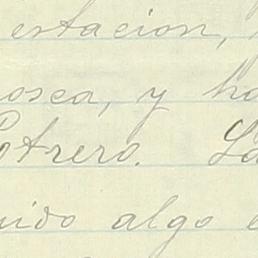 estacion,
osca, y ha
otrero. La
uido algo e